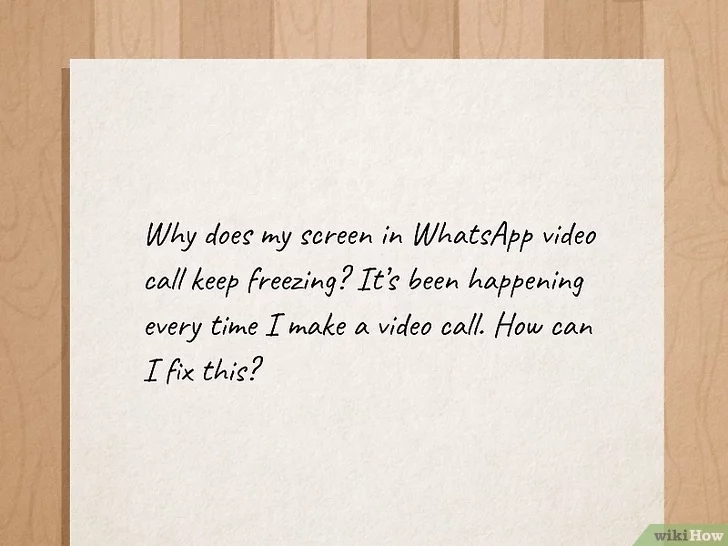 Why does my screen in WhatsApp video
call keep freezing? It's been happening
every time I make a video call. How can
I fix this?
wikiHow